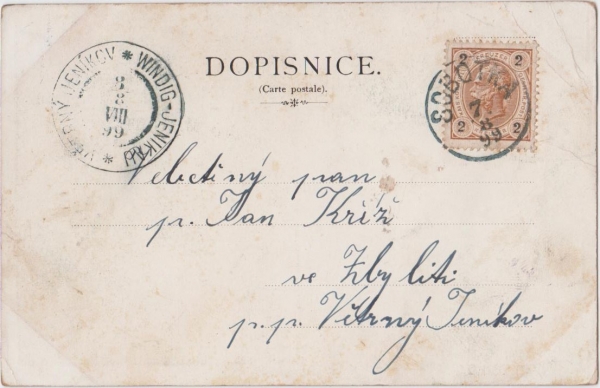 VĚTRNÝ JENÍKOV * WINDIG-JENIKAU *
8 8
VIII
99
DOPISNICE.
(Carte postale).
2 2
2 2
SOBOTKA
7 8
99
Velectěný pan
p. Jan Kříž
ve Zbyliti
p. p. Větrný Jeníkov